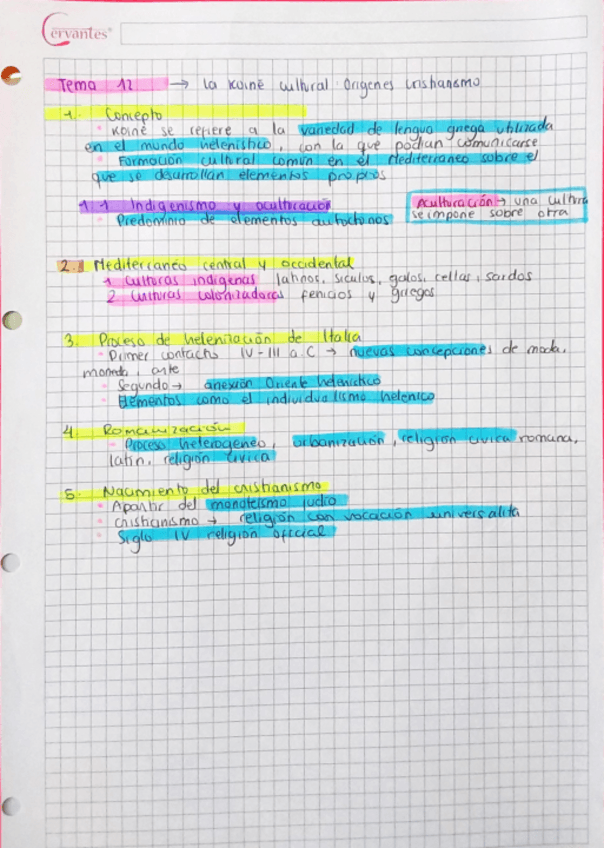 Cervantes
Tema 12 → La Koiné cultural. Orígenes cristianismo
1. Concepto
Koiné se refiere a la variedad de lengua griega utilizada
en el mundo helenístico, con la que podían comunicarse
Formación cultural común en el Mediterráneo sobre el
que se desarrollan elementos propios
1.1 Indigenismo y aculturación
Predominio de elementos autoctonos
Aculturación → una cultura
se impone sobre otra
2. Mediterraneo central y occidental
1 Culturas indigenas latinos, sículos, galos, celtas, sardos
2 Culturas colonizadoras fenicios y griegos
3. Proceso de helenización de Italia
Primer contacto IV-III a.C → nuevas concepciones de moda,
moneda, arte
Segundo → anexión Oriente helenístico
Elementos como el individualismo helenico
4. Romanización
Proceso heterogeneo, urbanización, religión civica romana,
latín, religión civica
5. Nacimiento del cristianismo
Apartir del monoteísmo judio
cristianismo → religión con vocación universalita
Siglo IV religión oficial